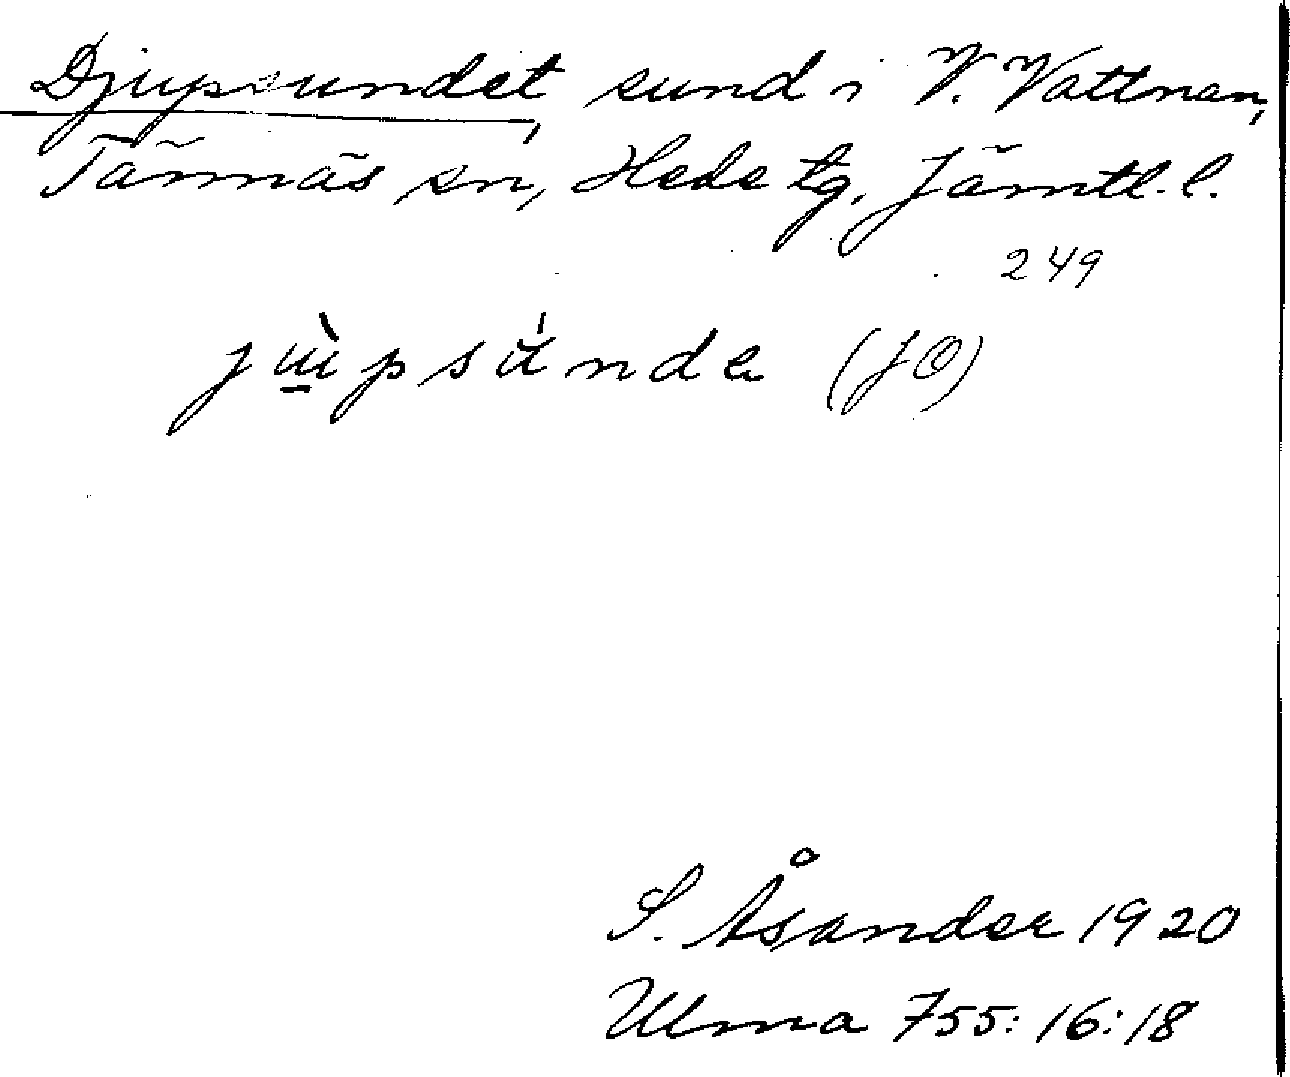 Djupsundet, sund i V. Vattnan,
Tännäs sn, Hede tg, Jämtl. l.
249
jɯ̱̀psúnda (JO)
S. Åsander 1920
Ulma 755:16:18